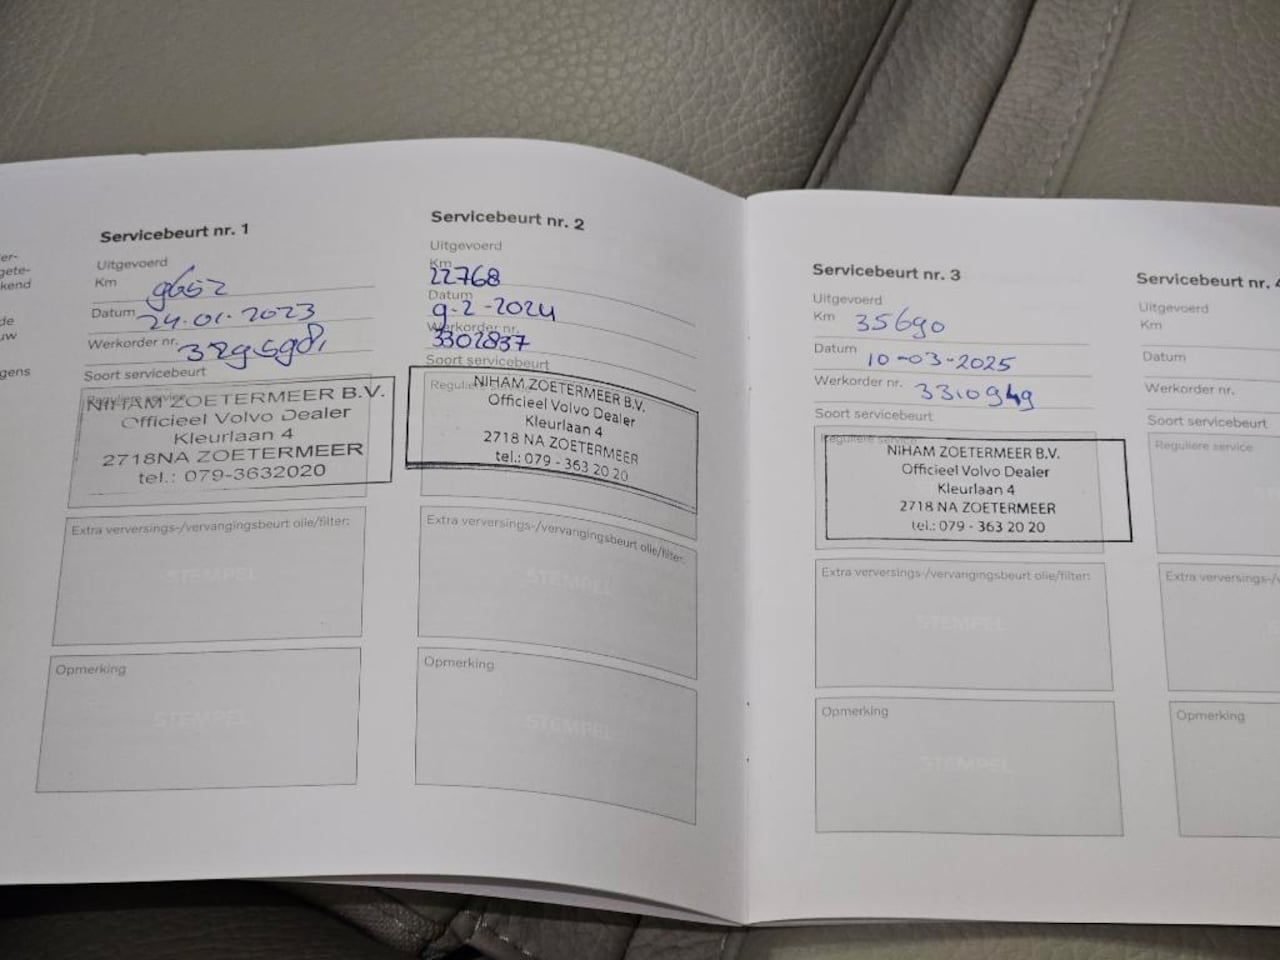 er-
gete-
kend
de
uw
gens
Servicebeurt nr. 1
Uitgevoerd
Km 9652
Datum 24-01-2023
Werkorder nr. 3295981
Soort servicebeurt
Reguliere service
NIHAM ZOETERMEER B.V.
Officieel Volvo Dealer
Kleurlaan 4
2718NA ZOETERMEER
tel.: 079-3632020
Extra verversings-/vervangingsbeurt olie/filter:
STEMPEL
Opmerking
STEMPEL
Servicebeurt nr. 2
Uitgevoerd
Km 22768
Datum 9-2-2024
Werkorder nr. 3302837
Soort servicebeurt
Reguliere
NIHAM ZOETERMEER B.V.
Officieel Volvo Dealer
Kleurlaan 4
2718 NA ZOETERMEER
tel.: 079 - 363 20 20
Extra verversings-/vervangingsbeurt olie/filter:
STEMPEL
Opmerking
STEMPEL
Servicebeurt nr. 3
Uitgevoerd
Km 35690
Datum 10-03-2025
Werkorder nr. 3310949
Soort servicebeurt
Reguliere service
NIHAM ZOETERMEER B.V.
Officieel Volvo Dealer
Kleurlaan 4
2718 NA ZOETERMEER
tel.: 079 - 363 20 20
Extra verversings-/vervangingsbeurt olie/filter:
STEMPEL
Opmerking
STEMPEL
Servicebeurt nr. 4
Uitgevoerd
Km
Datum
Werkorder nr.
Soort servicebeurt
Reguliere service
Extra verversings-/v
Opmerking